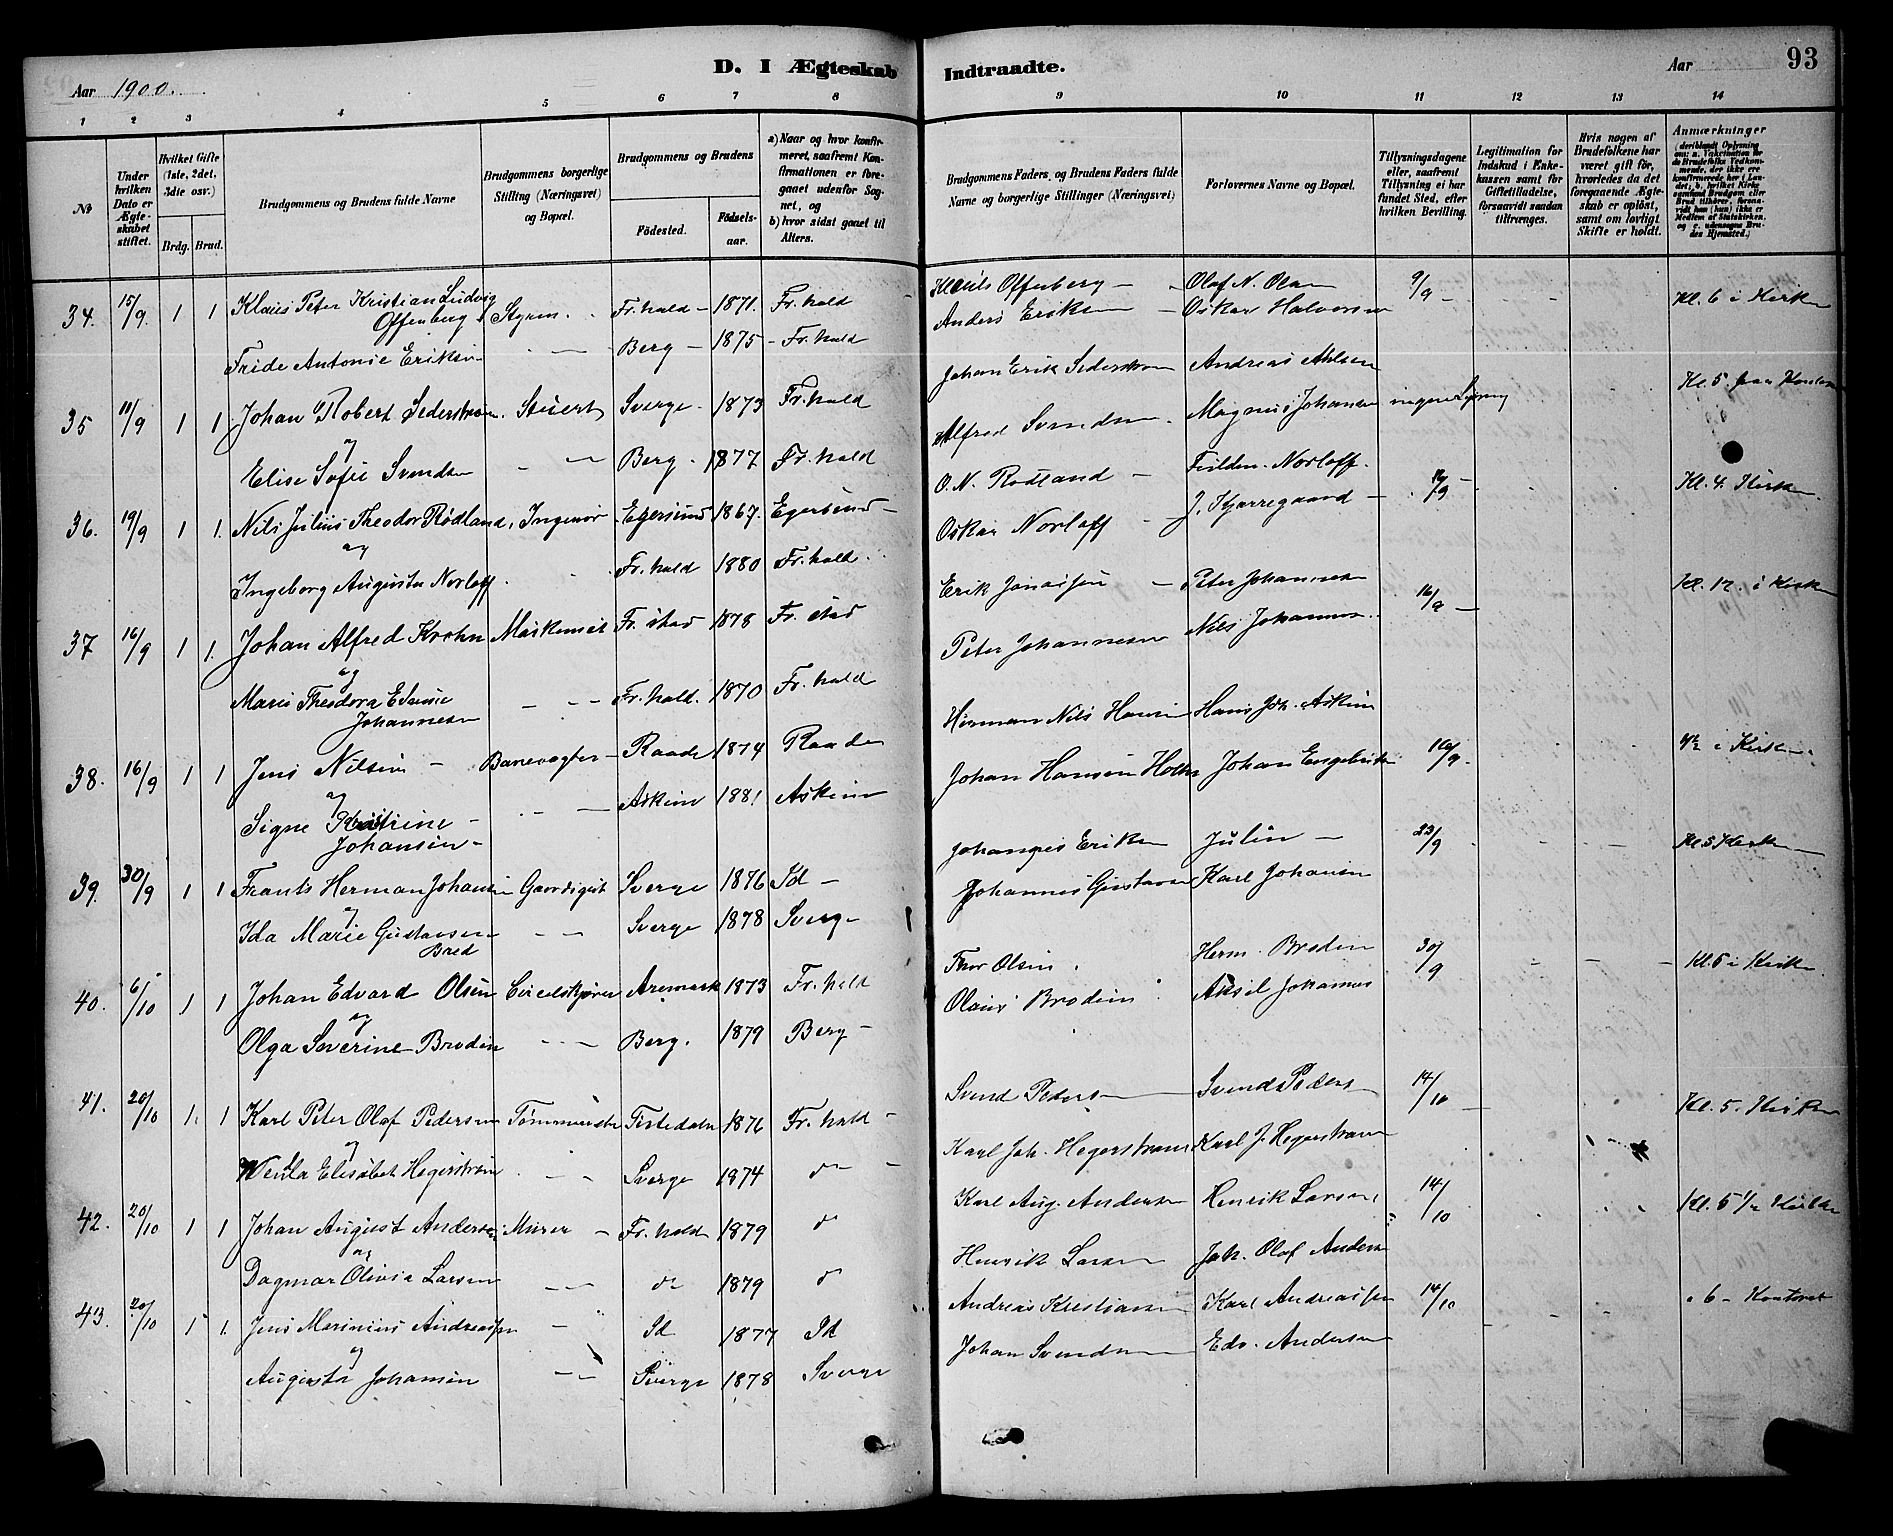 D. I Ægteskab Indtraadte.
Aar 1900.
Aar
93
1 2 3 4 5 6 7 8 9 10 11 12 13 14
No
Under hvilken Dato er Ægteskabet stiftet.
Hvilket Gifte (1ste, 2det, 3die osv.)
Brdg. Brud.
Brudgommens og Brudens fulde Navne
Brudgommens borgerlige Stilling (Næringsvei) og Bopæl.
Brudgommens og Brudens
Födested.
Födselsaar.
a) Naar og hvor konfirmeret, saafremt Konfirmationen er foregaaet udenfor Sognet, og
b) hvor sidst gaaet til Alters.
Brudgommens Faders, og Brudens Faders fulde Navne og borgerlige Stillinger (Næringsvei)
Forlovernes Navne og Bopæl.
Tillysningsdagene eller, saafremt Tillysning ei har fundet Sted, efter hvilken Bevilling.
Legitimation for Indskud i Enkekassen samt for Giftetilladelse, forsaavidt saadan tiltrænges.
Hvis nogen af Brudefolkene har været gift för, hvorledes da det foregaaende Ægteskab er oplöst, samt om lovligt Skifte er holdt.
Anmærkninger
34. 15/9. 1 1 Klaus Peter Kristian Ludvig Offenberg Fr. hald 1871. Fr. hald Offenberg Olaf N. Olsen 9/9 Kl. 6 i Kirken
Antonie Eriksen Berg 1875 Fr. hald Anders Eriksen Oskar Halvorsen
35 1 1. Johan Robert Sederstrøm Stuert Sverge 1873 Fr. hald Johan Erik Sederstrøm Andreas Kl. 5 paa
og
Elise Sofie Svendsen Berg. 1877 Fr. hald Alfred Svendsen Magnus Johansen
36. 19/9 1 1. Nils Julius Theodor Rødland, Ingeniør Egersund 1867. Egersund O. N. Rødland Norloff Kl. 4. Kirken
og
Ingeborg Augusta Norloff Fr. hald 1880 Fr. hald. Oskar Norloff J. Kjærregaard
37 16/9 1 1. Johan Alfred Krohn Fr. stad 1878 Fr. stad Erik Jonassen Peter Johannesen 16/9 Kl. 12. i Kirken
og
Marie Theodora Johannesen Fr. hald. 1870 Fr. hald Peter Johannesen Nils Johannesen
38. 16/9 1 1 Jens Nilsen Banevogter Raade 1874 Raade Herman Nils Hansen Hans Joh. Askim 16/9. i Kirken
og
Signe Johansen Askim 1881 Askim Johan Hansen Johan Engebretsen
39. 30/9 1 1 Frants Herman Johansen Gaardsgut Sverge 1876 Id Johannes Eriksen Julin 23/9 Kl. 5 Kirken
og
Ida Marie Gustavsen Bred Sverge 1878 Sverge Johannes Gustavsen Karl Johansen
40. 6/10 1 1 Johan Edvard Olsen Aremark 1873 Fr. hald Thor Olsen Herm. Brodin 30/9 Kl. 5 i Kirken.
og
Olga Severine Brodin Berg. 1879 Berg Olaus Brodin Johannes
41. 20/10 1. 1 Karl Peter Olaf Pedersen Tistedalen 1876 Fr. hald Svend Pedersen Svend Pedersen 14/10 Kl. 5. Kirken
og
Elisabet Hegerstrøm Sverge 1874 Karl Joh. Hegerstrøm Karl J. Hegerstrøm
42. 20/10 1 1 Johan August Andersen Murer Fr. hald 1879 Karl Aug. Andersen Henrik Larsen 14/10 Kl. 5 1/2 Kirken
og
Dagmar Olivia Larsen 1879 Henrik Larsen Joh. Olaf Andersen
43. 20/10 1 1. Jens Marinius Andreassen Id 1877 Id Andreas Kristiansen Karl Andreassen 14/10 6 Kontoret
og
Augusta Johansen Sverge 1878 Sverge Johan Svendsen Edv. Andersen